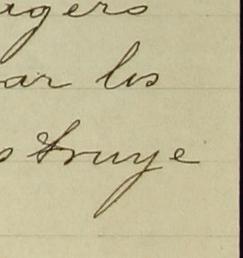 agers
ar les
s Truye